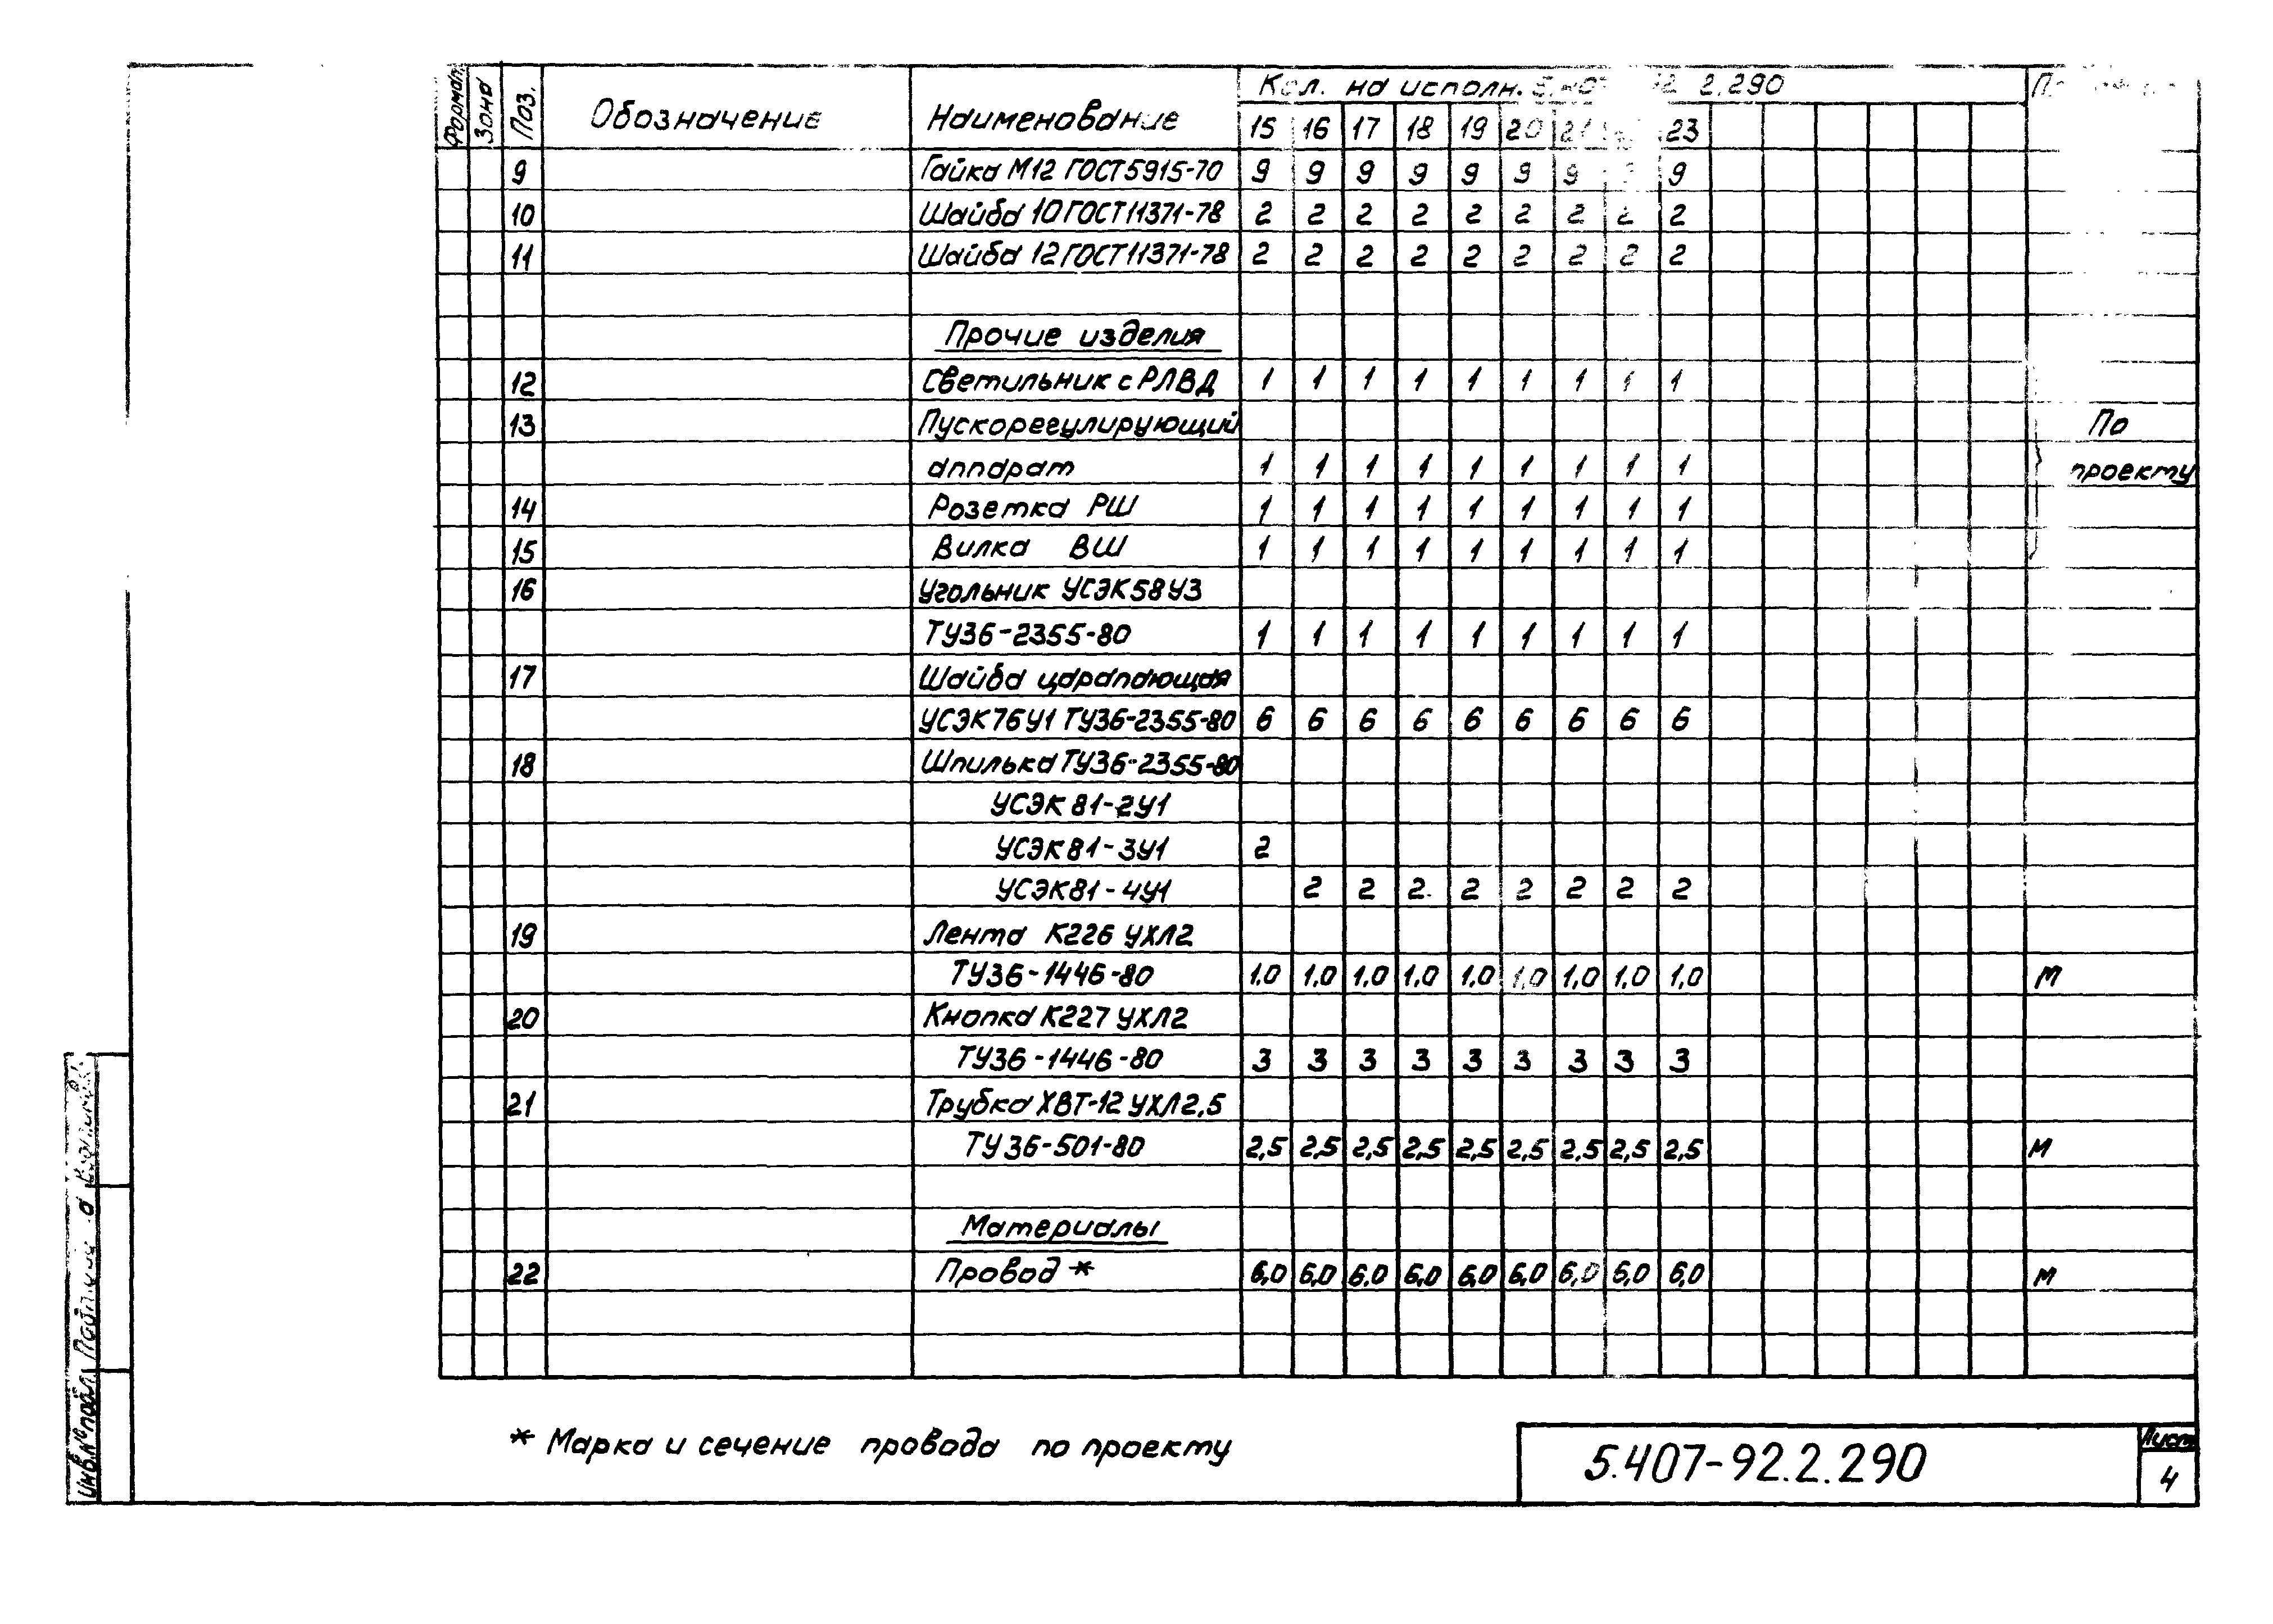 Формат Зона Поз. Обозначение Наименование Кол. на исполн. 2.290
15 16 17 18 19 20 21 23
9 Гайка М12 ГОСТ5915-70 9 9 9 9 9 9 9 9 9
10 Шайба 10 ГОСТ11371-78 2 2 2 2 2 2 2 2 2
11 Шайба 12 ГОСТ11371-78 2 2 2 2 2 2 2 2 2
Прочие изделия
12 Светильник с РЛВД 1 1 1 1 1 1 1 1 1
13 Пускорегулирующий По
аппарат 1 1 1 1 1 1 1 1 1 проекту
14 Розетка РШ 1 1 1 1 1 1 1 1 1
15 Вилка ВШ 1 1 1 1 1 1 1 1 1
16 Угольник УСЭК58У3
ТУ36-2355-80 1 1 1 1 1 1 1 1 1
17 Шайба царапающая
УСЭК76У1 ТУ36-2355-80 6 6 6 6 6 6 6 6 6
18 Шпилька ТУ36-2355-80
УСЭК 81-2У1
УСЭК81-3У1 2
УСЭК81-4У1 2 2 2 2 2 2 2 2
19 Лента К226 УХЛ2
ТУ36-1446-80 1,0 1,0 1,0 1,0 1,0 1,0 1,0 1,0 1,0 м
20 Кнопка К227 УХЛ2
ТУ36-1446-80 3 3 3 3 3 3 3 3 3
21 Трубка ХВТ-12 УХЛ2,5
ТУ36-501-80 2,5 2,5 2,5 2,5 2,5 2,5 2,5 2,5 2,5 м
Материалы
22 Провод * 6,0 6,0 6,0 6,0 6,0 6,0 6,0 6,0 6,0 м
* Марка и сечение провода по проекту
5.407-92.2.290
Лист
4
Инв.№ подл.